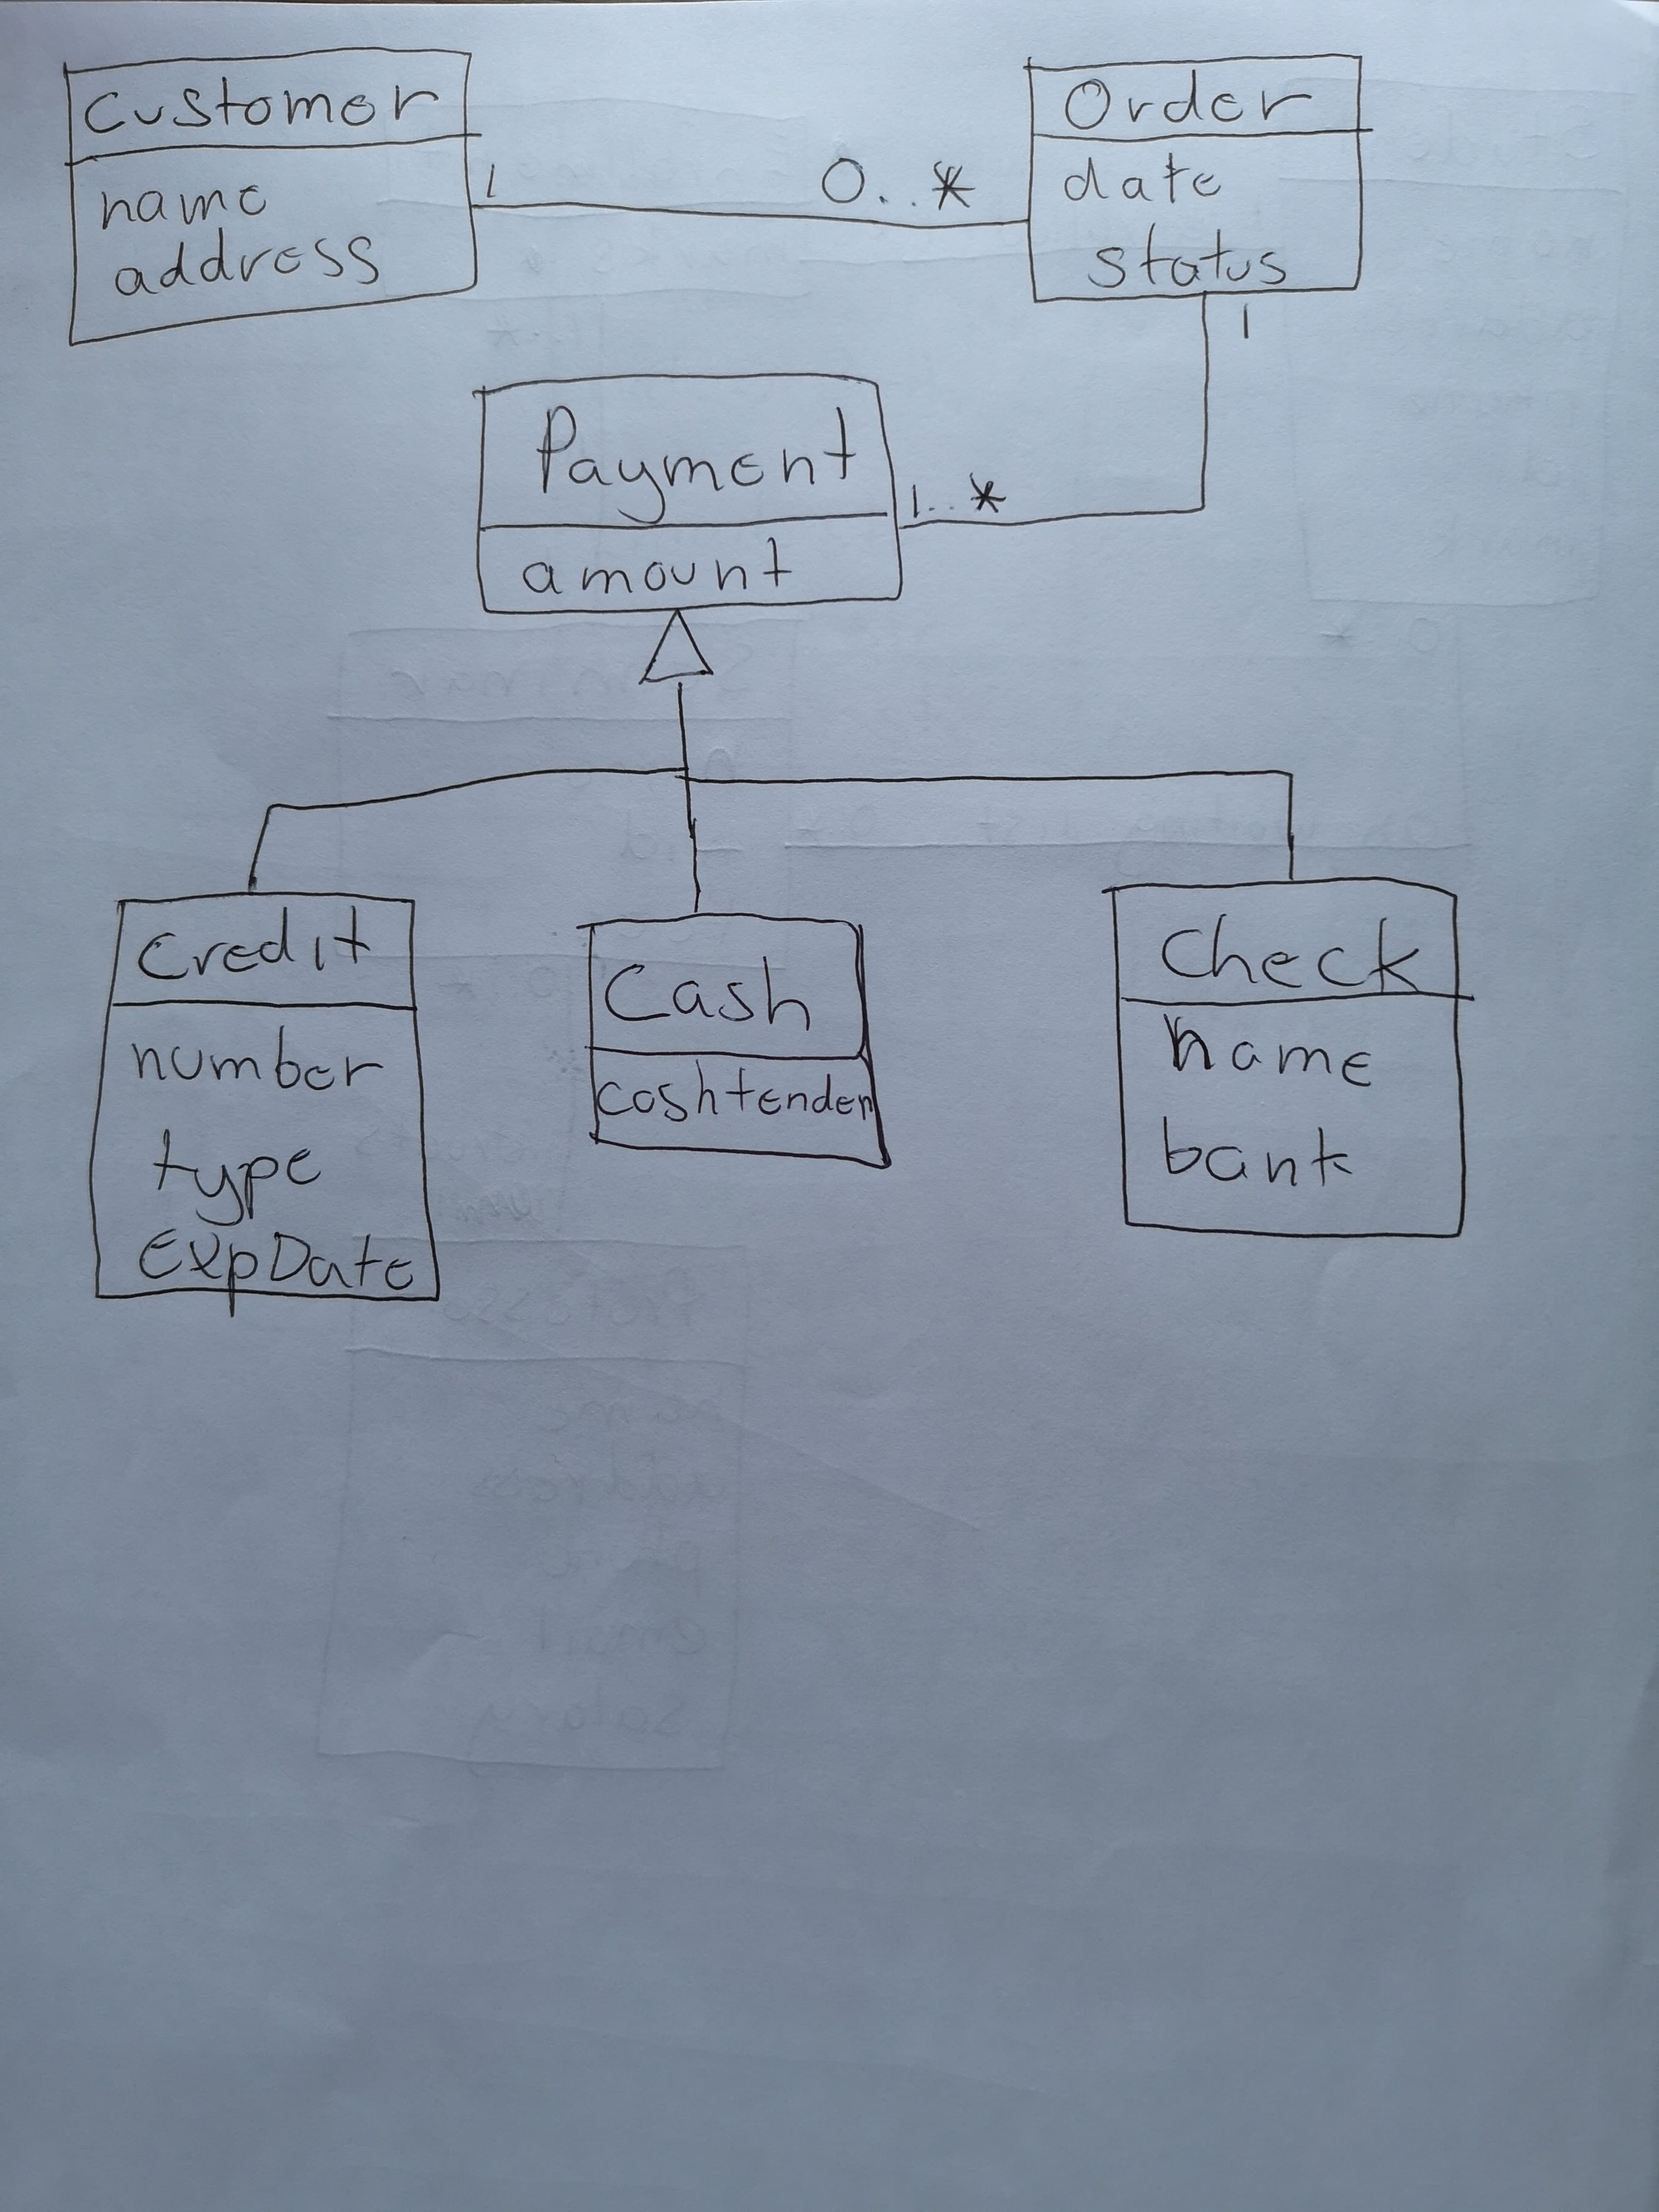 Customer
name
address
1
0..*
Order
date
status
1
Payment
amount
1..*
Credit
number
type
ExpDate
Cash
cashtender
Check
name
bank